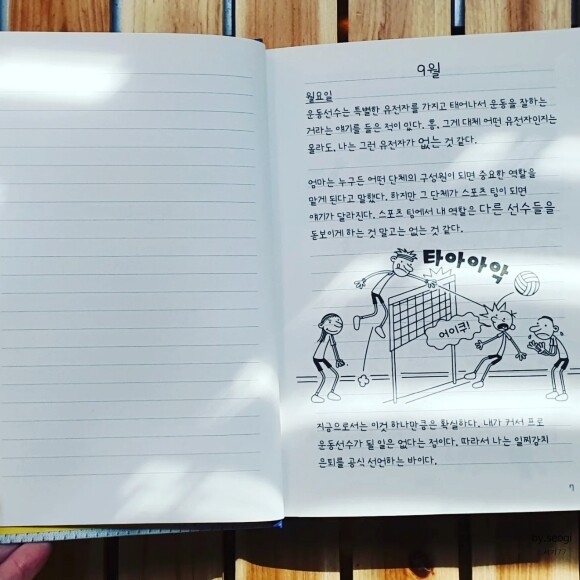 9월
월요일
운동선수는 특별한 유전자를 가지고 태어나서 운동을 잘하는
거라는 얘기를 들은 적이 있다. 흥, 그게 대체 어떤 유전자인지는
몰라도, 나는 그런 유전자가 없는 것 같다.
엄마는 누구든 어떤 단체의 구성원이 되면 중요한 역할을
맡게 된다고 말했다. 하지만 그 단체가 스포츠 팀이 되면
얘기가 달라진다. 스포츠 팀에서 내 역할은 다른 선수들을
돋보이게 하는 것 말고는 없는 것 같다.
타아아악
어이쿠!
지금으로서는 이것 하나만큼은 확실하다. 내가 커서 프로
운동선수가 될 일은 없다는 점이다. 따라서 나는 일찌감치
은퇴를 공식 선언하는 바이다.
7
by.seogi